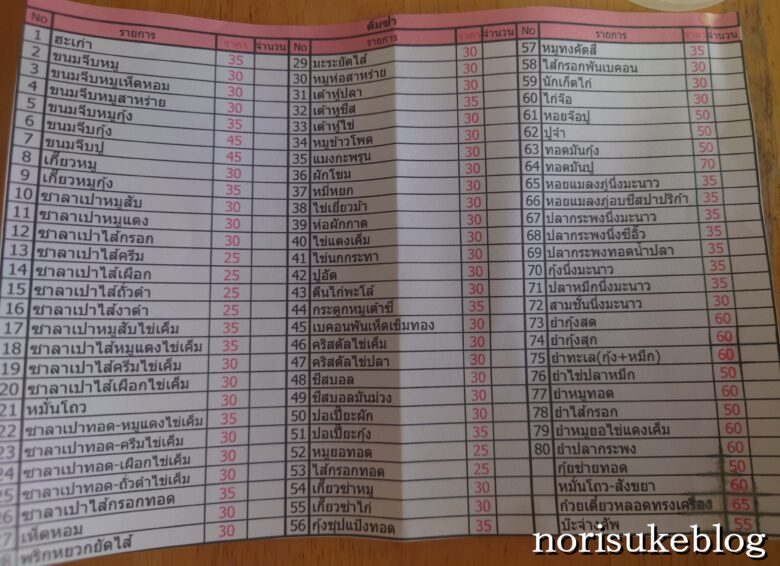 ติ่มซำ
No รายการ ราคา จำนวน No รายการ ราคา จำนวน No รายการ ราคา จำนวน
1 ฮะเก๋า 35
2 ขนมจีบหมู 30
3 ขนมจีบหมูเห็ดหอม 30
4 ขนมจีบหมูสาหร่าย 30
5 ขนมจีบหมูกุ้ง 35
6 ขนมจีบกุ้ง 45
7 ขนมจีบปู 45
8 เกี๊ยวหมู 30
9 เกี๊ยวหมูกุ้ง 35
10 ซาลาเปาหมูสับ 30
11 ซาลาเปาหมูแดง 30
12 ซาลาเปาไส้กรอก 30
13 ซาลาเปาไส้ครีม 25
14 ซาลาเปาไส้เผือก 25
15 ซาลาเปาไส้ถั่วดำ 25
16 ซาลาเปาไส้งาดำ 25
17 ซาลาเปาหมูสับไข่เค็ม 30
18 ซาลาเปาไส้หมูแดงไข่เค็ม 35
19 ซาลาเปาไส้ครีมไข่เค็ม 30
20 ซาลาเปาไส้เผือกไข่เค็ม 30
21 หมั่นโถว 30
22 ซาลาเปาทอด-หมูแดงไข่เค็ม 35
23 ซาลาเปาทอด-ครีมไข่เค็ม 30
24 ซาลาเปาทอด-เผือกไข่เค็ม 30
25 ซาลาเปาทอด-ถั่วดำไข่เค็ม 30
26 ซาลาเปาไส้กรอกทอด 35
27 เห็ดหอม 30
28 พริกหยวกยัดไส้ 30
29 มะระยัดไส้ 30
30 หมูห่อสาหร่าย 30
31 เต้าหู้ปลา 30
32 เต้าหู้ชีส 35
33 เต้าหู้ไข่ 30
34 หมูข้าวโพด 30
35 แมงกะพรุน 30
36 ผักโขม 30
37 หมึหยก 30
38 ไข่เยี่ยวม้า 30
39 ห่อผักกาด 30
40 ไข่แดงเค็ม 30
41 ไข่นกกระทา 30
42 ปูอัด 30
43 ตีนไก่พะโล้ 30
44 กระดูกหมูเต้าซี่ 35
45 เบคอนพันเห็ดเข็มทอง 30
46 คริสตัลไข่เค็ม 30
47 คริสตัลไข่ปลา 30
48 ชีสบอล 30
49 ชีสบอลมันม่วง 30
50 ปอเปี๊ยะผัก 30
51 ปอเปี๊ยะกุ้ง 30
52 หมูยอทอด 25
53 ไส้กรอกทอด 25
54 เกี๊ยวซ่าหมู 30
55 เกี๊ยวซ่าไก่ 30
56 กุ้งชุปแป้งทอด 35
57 หมูทงคัตสึ 35
58 ไส้กรอกพันเบคอน 30
59 นักเก็ตไก่ 30
60 ไก่จ๊อ 30
61 หอยจ๊อปู 50
62 ปูจ๋า 50
63 ทอดมันกุ้ง 50
64 ทอดมันปู 70
65 หอยแมลงภู่นึ่งมะนาว 35
66 หอยแมลงภู่อบชีสปาปริก้า 35
67 ปลากระพงนึ่งมะนาว 35
68 ปลากระพงนึ่งซีอิ๊ว 35
69 ปลากระพงทอดน้ำปลา 35
70 กุ้งนึ่งมะนาว 35
71 ปลาหมึกนึ่งมะนาว 35
72 สามชั้นนึ่งมะนาว 30
73 ยำกุ้งสด 60
74 ยำกุ้งสุก 60
75 ยำทะเล(กุ้ง+หมึก) 60
76 ยำไข่ปลาหมึก 50
77 ยำหมูทอด 60
78 ยำไส้กรอก 50
79 ยำหมูยอไข่แดงเค็ม 60
80 ยำปลากระพง 60
กุ้ยช่ายทอด 50
หมั่นโถว-สังขยา 60
ก๋วยเตี๋ยวหลอดทรงเครื่อง 65
บ๊ะจ่าง 55
norisukeblog